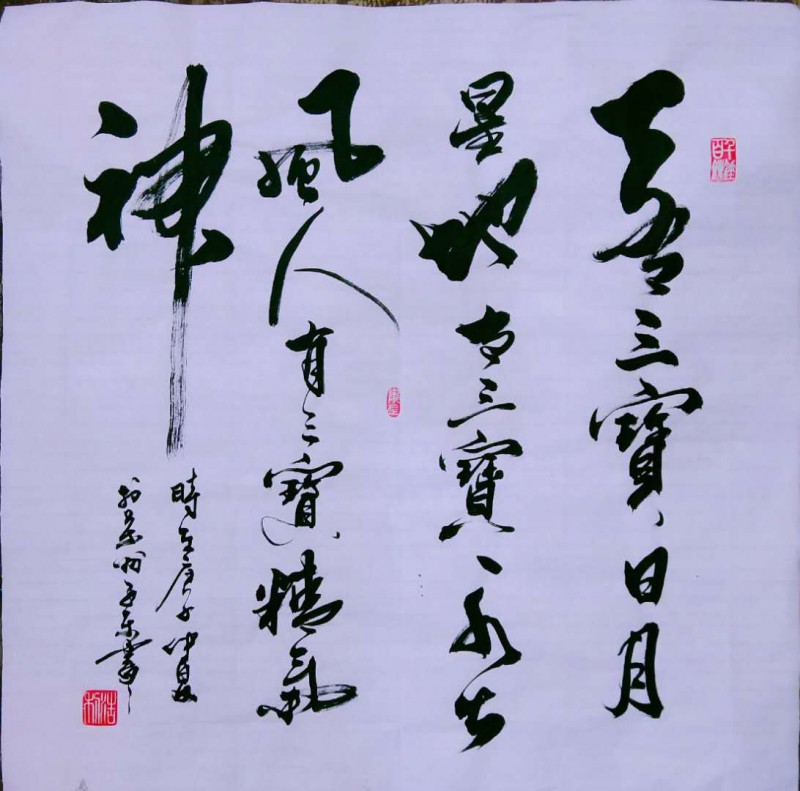 天有三寶日月
星地有三寶水火
風人有三寶精氣
神
時在庚子仲夏
書